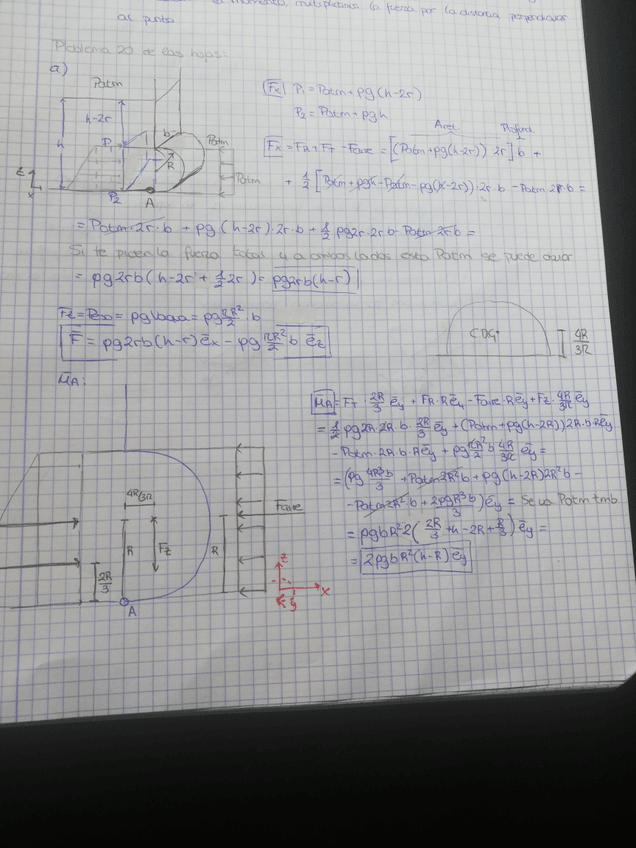 el momento, multiplicamos la fuerza por la distancia perpendicular
al punto.
Problema 20 de las hojas:
a)
Patm
h-2r
h
P1
P2
b
R
A
Patm
Patm
z
x
Fx P1 = Patm + ρg(h-2r)
P2 = Patm + ρgh
Area Profund
Fx = FR + FT - Faire = [(Patm + ρg(h-2r)) 2r] b +
+ 1/2 [Patm + ρgh - Patm - ρg(h-2r)] · 2r · b - Patm 2r b =
= Patm · 2r · b + ρg (h-2r) · 2r · b + 1/2 ρg 2r · 2r · b - Patm · 2r · b =
Si te piden la fuerza total y a ambos lados esta Patm se puede quitar
= ρg 2rb (h-2r + 1/2 2r) = ρg2rb(h-r)
Fz = Peso = ρg = ρg πR²/2 · b
F̄ = ρg2rb(h-r) ēx - ρg πR²/2 b ēz
CDG
4R/3π
M̄A:
M̄A = FT · 2R/3 ēy + FR · R ēy - Faire · R ēy + Fz · 4R/3π ēy
= 1/2 ρg 2R · 2R · b · 2R/3 ēy + (Patm + ρg(h-2R)) 2R · b · R ēy
- Patm · 2R · b · R ēy + ρg πR²/2 b 4R/3π ēy =
= (ρg 4R³b/3 + Patm 2R²b + ρg(h-2R) 2R²b -
- Patm 2R²b + 2ρgR³b/3) ēy = Se va Patm tmb
= ρgbR² 2 (2R/3 + h - 2R + R/3) ēy =
= 2ρgbR²(h-R) ēy
4R/3π
R
Fz
R
Faire
2R/3
A
z
x
y